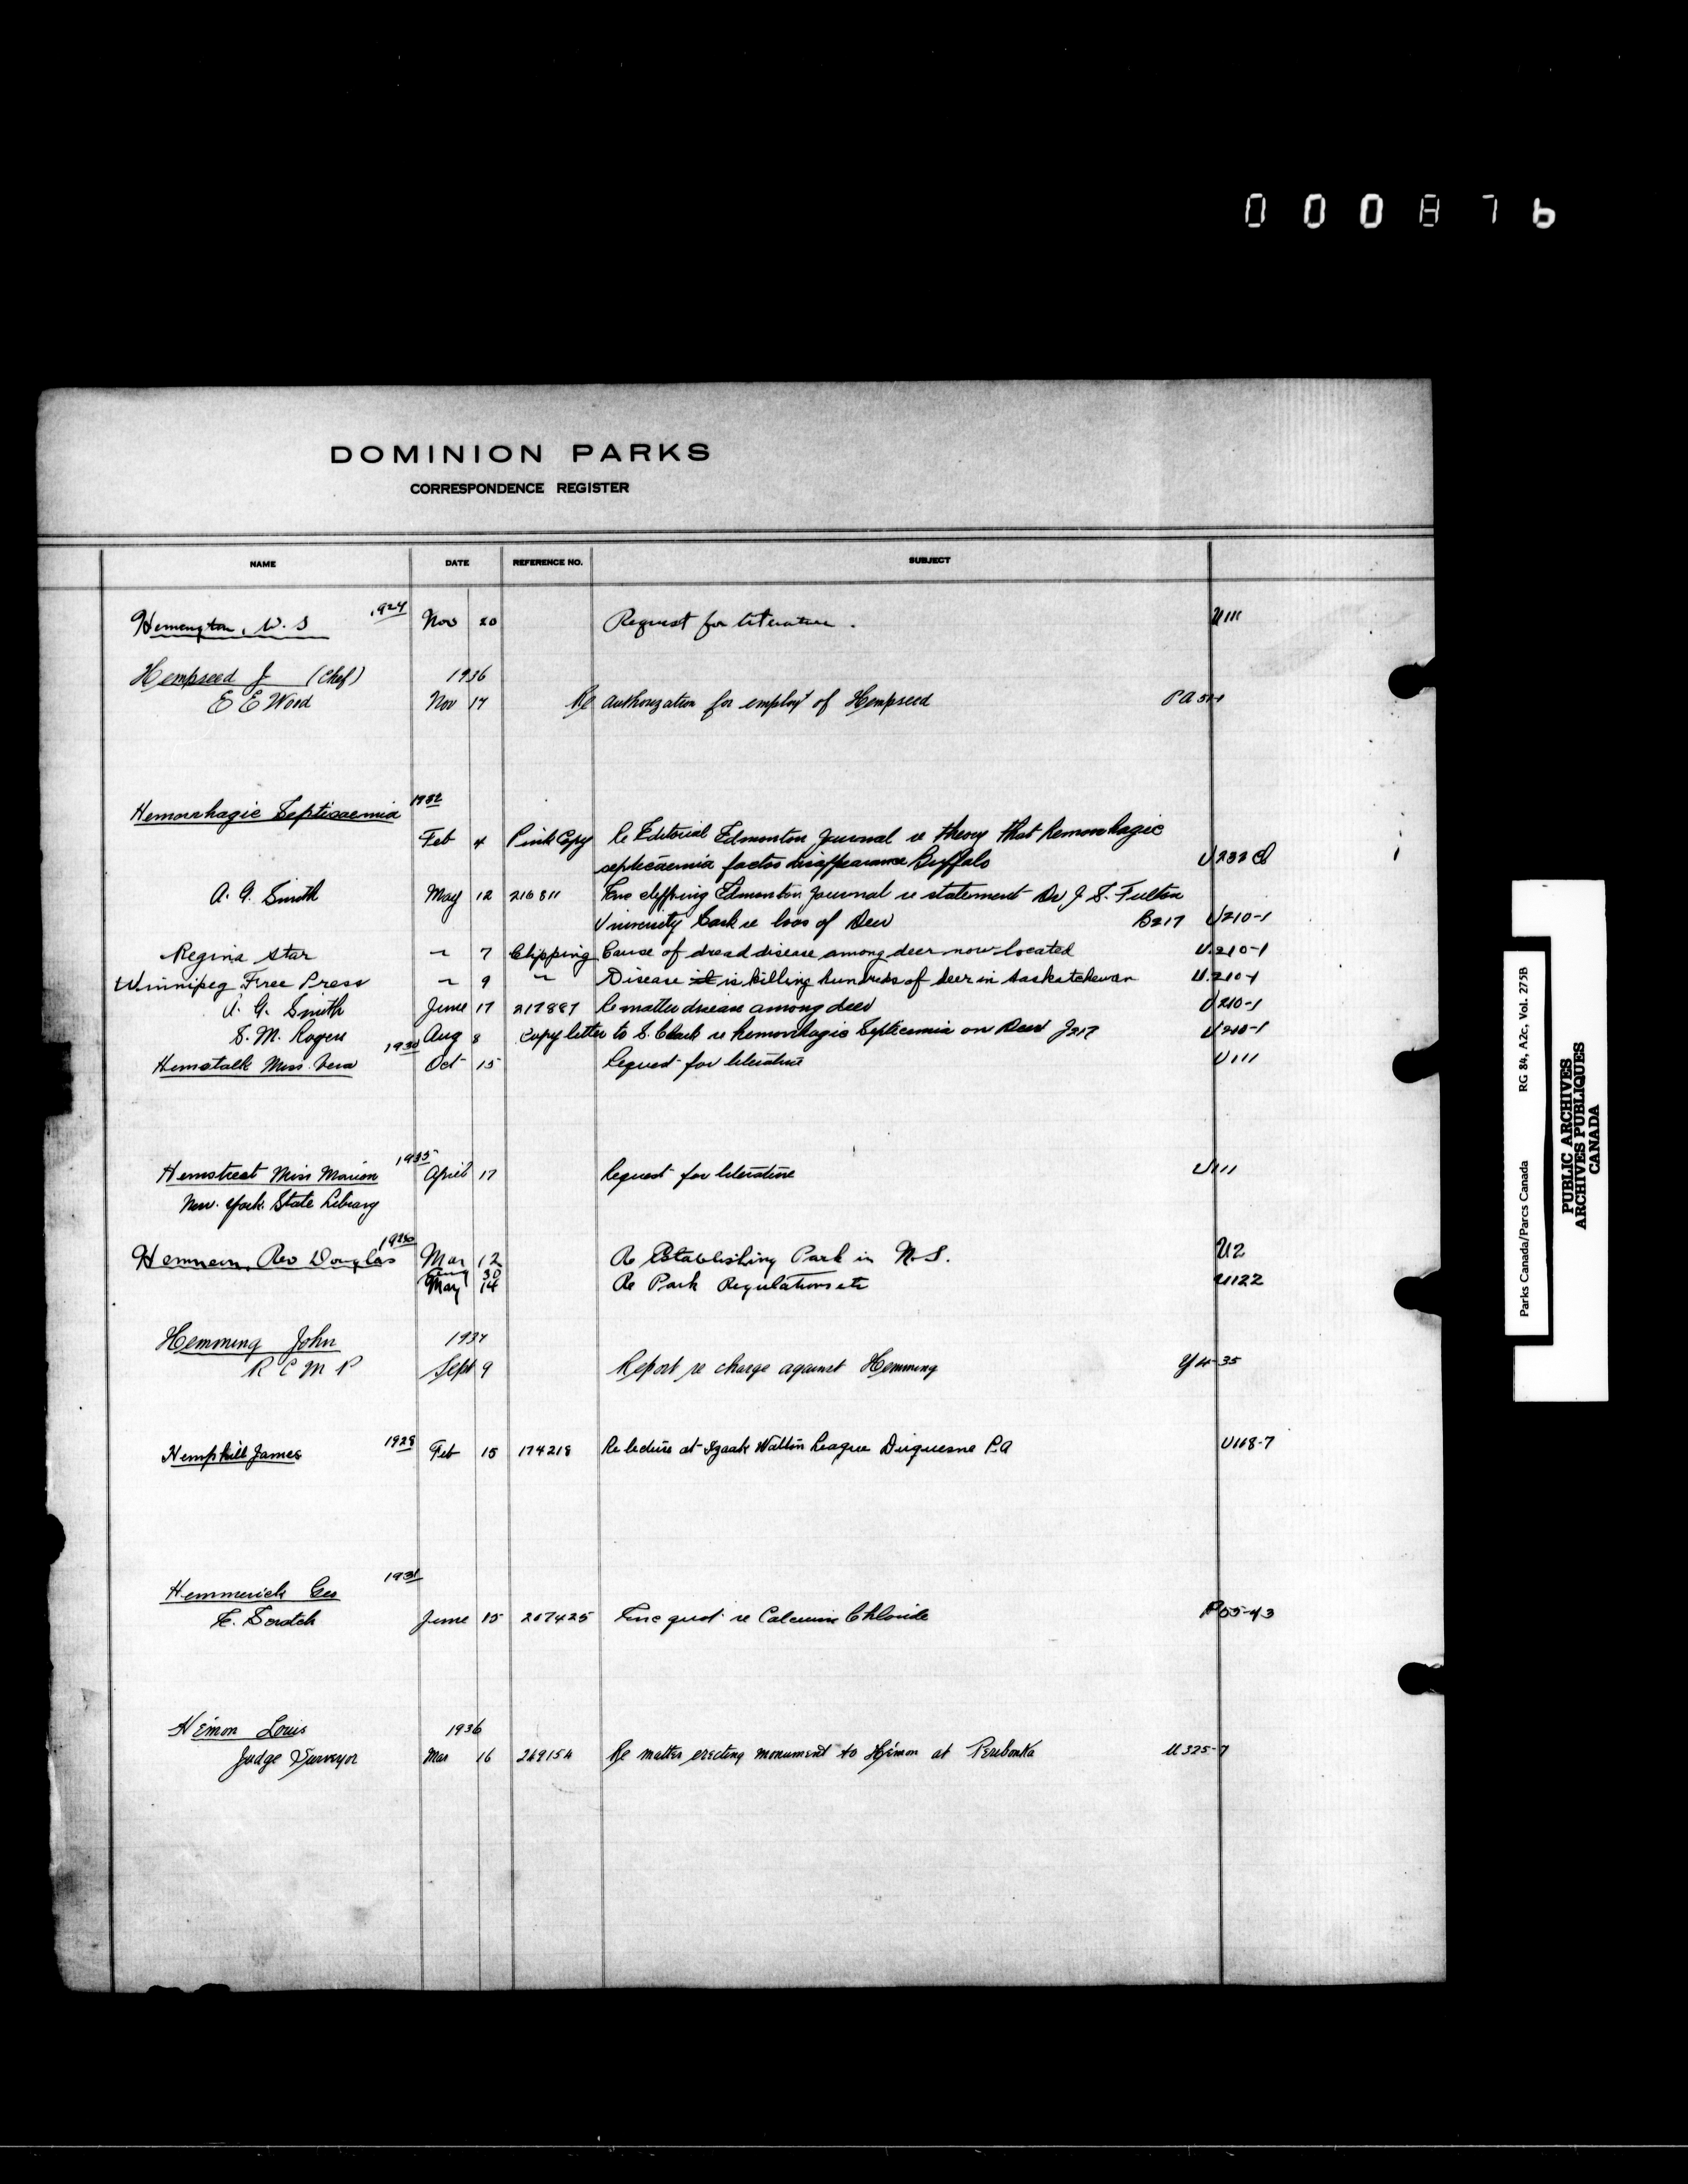 000876
DOMINION PARKS
CORRESPONDENCE REGISTER
NAME DATE REFERENCE NO. SUBJECT
Hemengton, W. S 1924 Nov 20 Request for literature. U111
Hempseed J (Chef) 1936
E E Wood Nov 17 Re authorization for employt of Hempseed PA 51-1
Hemorrhagic Septicaemia 1932
Feb 4 Pink Copy Re Editorial Edmonton Journal re theory that hemorrhagic
septicaemia factor disappearance Buffalo U232
A. G. Smith May 12 210811 Enc clipping Edmonton Journal re statement Dr J. S. Fulton
University Sask re loss of Deer B217 U210-1
Regina Star " 7 Clipping Cause of dread disease among deer now located U.210-1
Winnipeg Free Press " 9 " Disease it is killing hundreds of deer in Saskatchewan U.210-1
A. G. Smith June 17 217887 Re matter disease among deer U210-1
S. M. Rogers Aug 8 Copy letter to S. Clark re hemorrhagic Septicemia on Deer J217 U210-1
Hemstalk Miss Vera 1930 Oct 15 Request for literature U111
Hemstreet Miss Marion 1935 April 17 Request for literature U111
New York State Library
Rev Douglas 1926 Mar 12 Re Establishing Park in N.S. U2
30
May 14 Re Park Regulations etc U122
Hemming John 1937
R C M P Sept 9 Report re charge against Hemming Y4-35
Hemphill James 1928 Feb 15 174218 Re lecture at Izaak Walton League Duquesne P.A U168-7
Hemmerich Geo 1931
E. Scratch June 15 207425 Enc quot re Calcium Chloride P55-43
Hémon Louis 1936
Judge Surveyor Mar 16 249154 Re matter erecting monument to Hémon at Peribonka U325-7
Parks Canada/Parcs Canada RG 84, A2c, Vol. 275B
PUBLIC ARCHIVES
ARCHIVES PUBLIQUES
CANADA